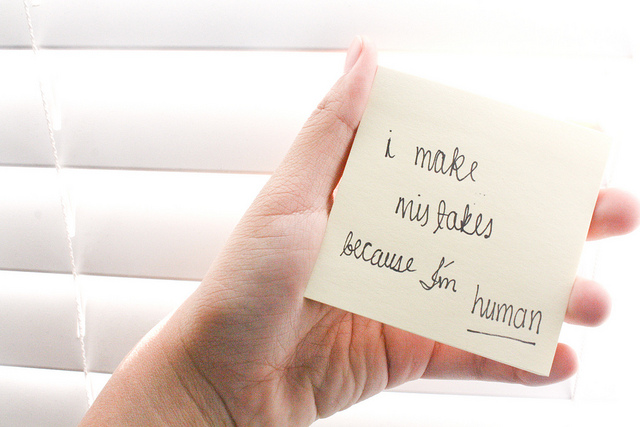 i make
mistakes
because I'm
human